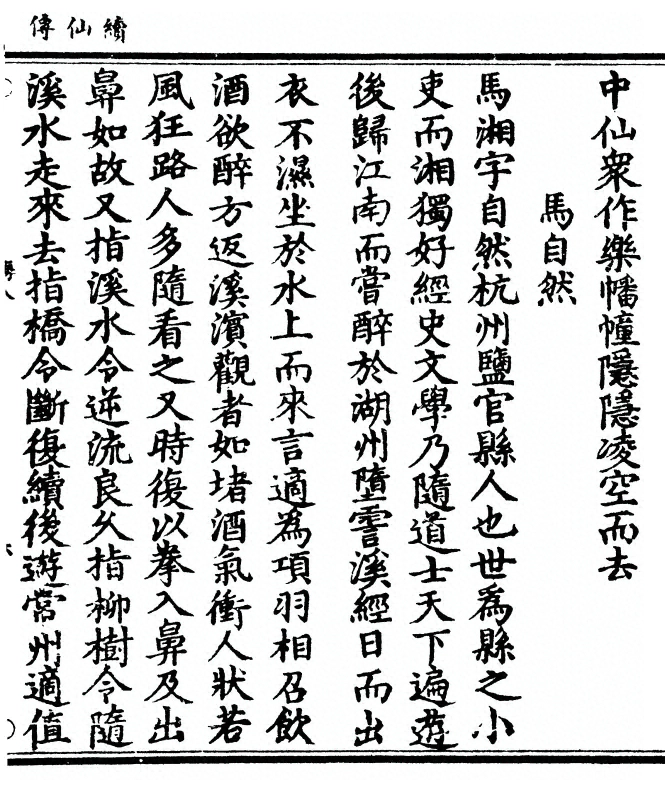 續仙傳
中仙衆作樂幡幢隱隱凌空而去
馬自然
馬湘字自然杭州鹽官縣人也世爲縣之小
吏而湘獨好經史文學乃隨道士天下遍遊
後歸江南而嘗醉於湖州墮霅溪經日而出
衣不濕坐於水上而來言適爲項羽相召飲
酒欲醉方返溪濱觀者如堵酒氣衝人狀若
風狂路人多隨看之又時復以拳入鼻及出
鼻如故又指溪水令逆流良久指柳樹令隨
溪水走來去指橋令斷復續後遊常州適值